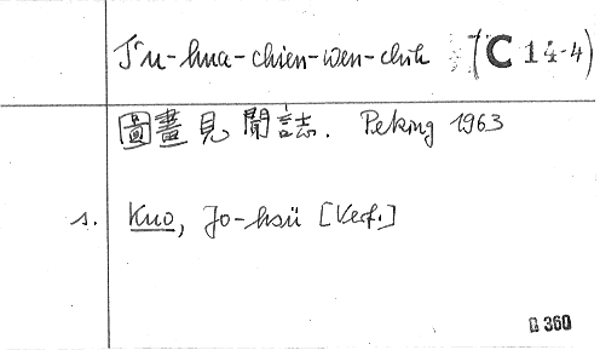 T'u-hua-chien-wen-chih (C 14-4)
圖畫見聞誌. Peking 1963
s. Kuo, Jo-hsü [Verf.]
360